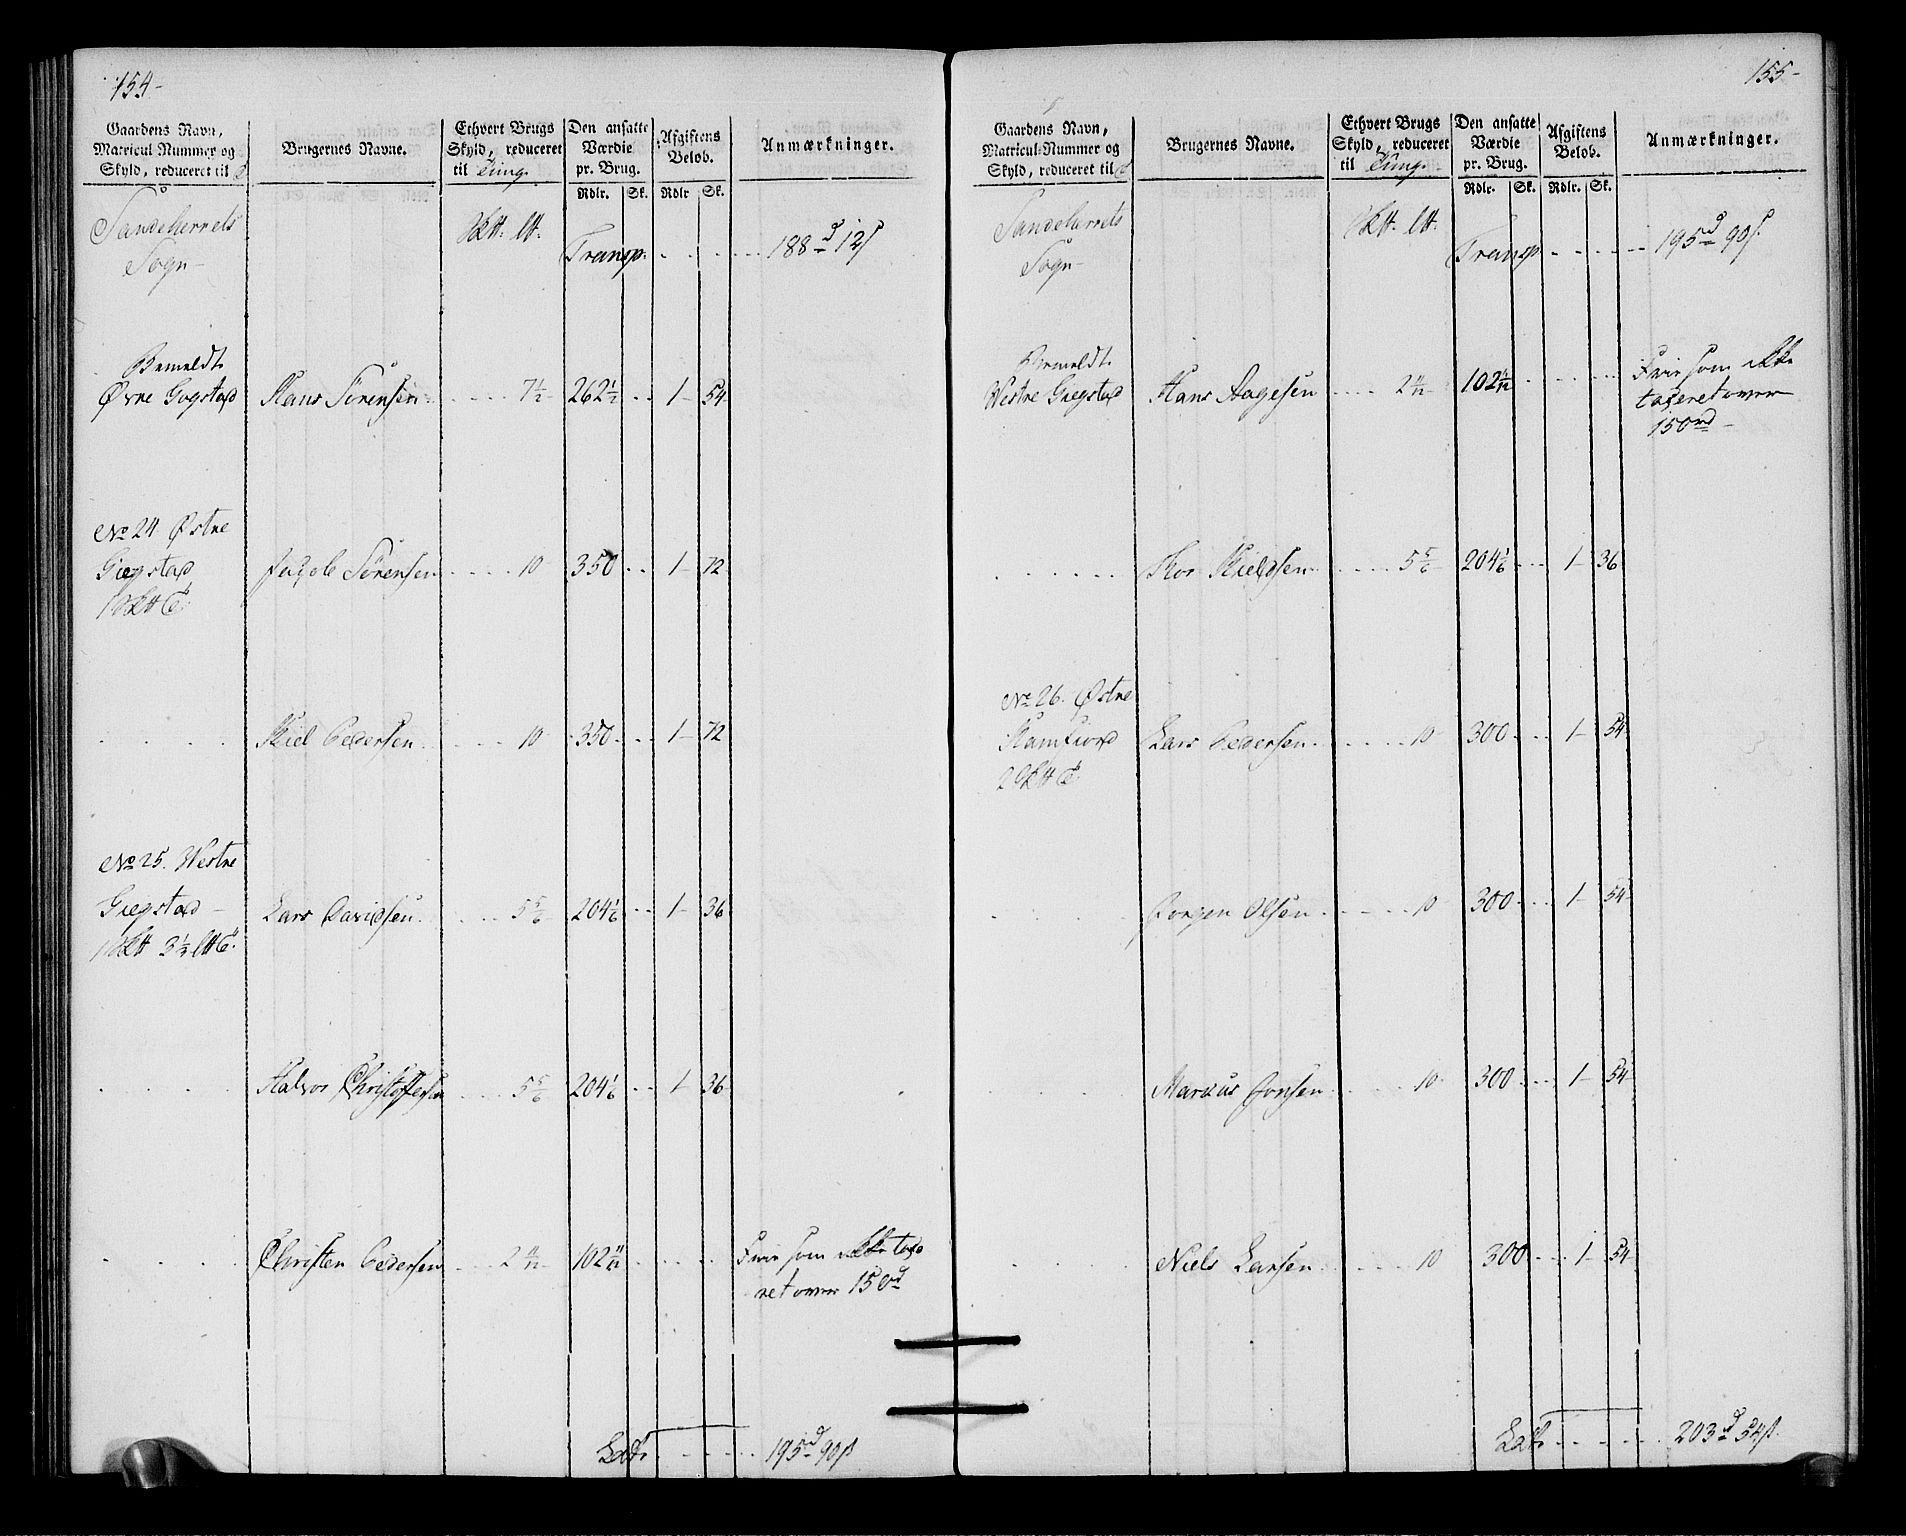 154-
Gaardens Navn,
Matricul-Nummer og
Skyld, reduceret til
Brugernes Navne.
Ethvert Brugs
Skyld, reduceret
til Tung.
Den ansatte
Værdie
pr. Brug.
Rdlr. Sk.
Afgiftens
Beløb.
Rdlr Sk.
Anmærkninger.
Sandeherrets
Sogn
Transp. 188 d 12 s
Bemeldt
Øvre Gogstad Hans Sørensen 7½ 262½ 1 54
No 24 Østre
Giegstad Jacob Sørensen 10 350 1 72
Kield Pedersen 10 350 1 72
No 25. Westre
Giegstad Lars Davidsen 5 5/6 204 1/6 1 36
Halvor Christoffersen 5 5/6 204 1/6 1 36
Christen Pedersen 2 11/12 102 1/12 Frie som ikke taxe
ret over 150 d
Lats 195 d 90 s
155-
Gaardens Navn,
Matricul-Nummer og
Skyld, reduceret til
Brugernes Navne.
Ethvert Brugs
Skyld, reduceret
til Tung.
Den ansatte
Værdie
pr. Brug.
Rdlr. Sk.
Afgiftens
Beløb.
Rdlr. Sk.
Anmærkninger.
Sandeherrets
Sogn
Transp 195 d 90 s
Bemeldt
Westre Giegstad Hans Aagesen 2 11/12 102 1/12 Frie som ikke
taxeret over
150 rd
Kield­sen 5 5/6 204 1/6 1 36
No 26. Østre
Kamfiord Lars Pedersen 10 300 1 54
Jørgen Olsen 10 300 1 54
Marcus Jonsen 10 300 1 54
Niels Larsen 10 300 1 54
Lats 203 d 54 s